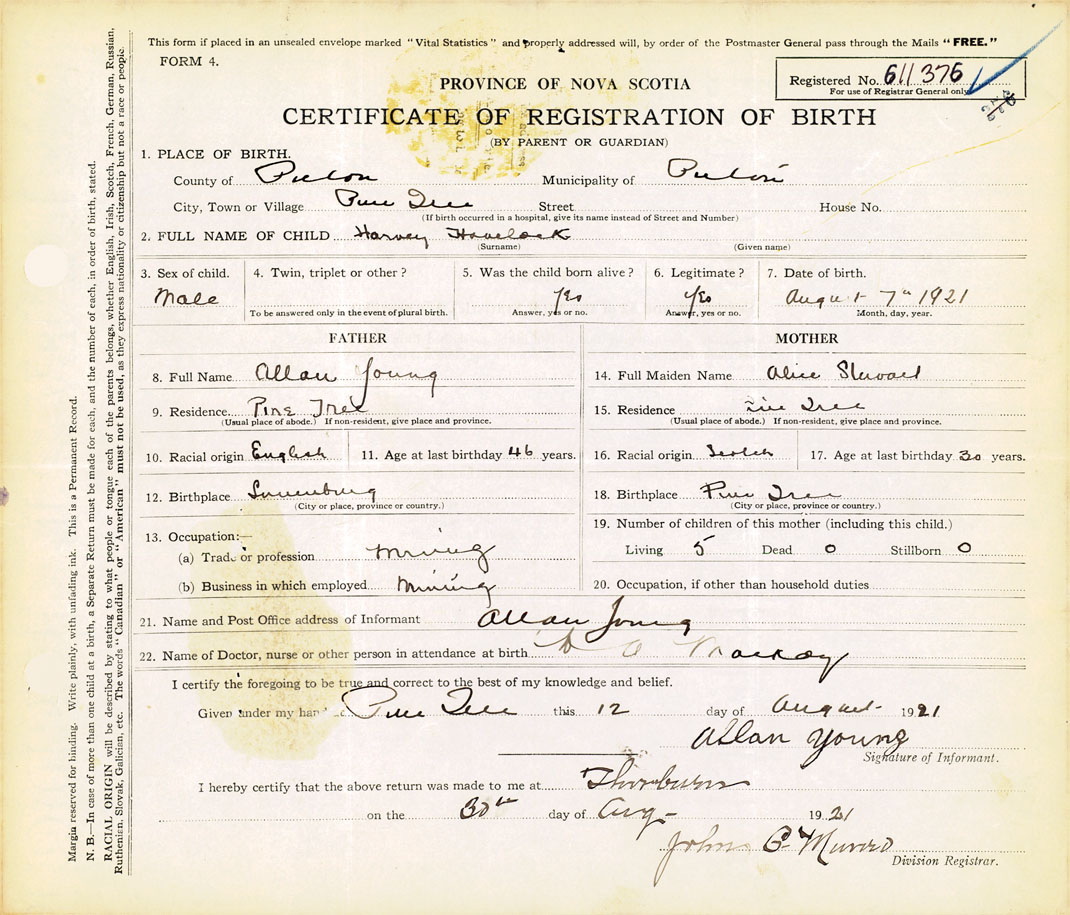 This form if placed in an unsealed envelope marked "Vital Statistics" and properly addressed will, by order of the Postmaster General pass through the Mails "FREE."
FORM 4.
Registered No. 611376
For use of Registrar General only
PROVINCE OF NOVA SCOTIA
CERTIFICATE OF REGISTRATION OF BIRTH
(BY PARENT OR GUARDIAN)
1. PLACE OF BIRTH.
County of Pictou Municipality of Pictou
City, Town or Village Pine Tree Street House No.
(If birth occurred in a hospital, give its name instead of Street and Number)
2. FULL NAME OF CHILD Harvey Havelock
(Surname) (Given name)
3. Sex of child. 4. Twin, triplet or other? 5. Was the child born alive? 6. Legitimate? 7. Date of birth.
Male Yes Yes August 7th 1921
To be answered only in the event of plural birth. Answer, yes or no. Answer, yes or no. Month, day, year.
FATHER MOTHER
8. Full Name Allan Young 14. Full Maiden Name Alice Stewart
9. Residence Pine Tree 15. Residence Pine Tree
(Usual place of abode.) If non-resident, give place and province. (Usual place of abode.) If non-resident, give place and province.
10. Racial origin English 11. Age at last birthday 46 years. 16. Racial origin Scotch 17. Age at last birthday 30 years.
12. Birthplace Lunenburg 18. Birthplace Pine Tree
(City or place, province or country.) (City or place, province or country.)
13. Occupation:— 19. Number of children of this mother (including this child.)
(a) Trade or profession Mining Living 5 Dead 0 Stillborn 0
(b) Business in which employed Mining 20. Occupation, if other than household duties
21. Name and Post Office address of Informant Allan Young
22. Name of Doctor, nurse or other person in attendance at birth Mackay
I certify the foregoing to be true and correct to the best of my knowledge and belief.
Given under my hand Pine Tree this 12 day of August 1921
Allan Young
Signature of Informant.
I hereby certify that the above return was made to me at Thorburn
on the 30th day of Aug 1921
John C Munro
Division Registrar.
Margin reserved for binding. Write plainly, with unfading ink. This is a Permanent Record.
N. B.—In case of more than one child at a birth, a Separate Return must be made for each, and the number of each, in order of birth, stated.
RACIAL ORIGIN will be described by stating to what people or tongue each of the parents belongs, whether English, Irish, Scotch, French, German, Russian,
Ruthenian, Slovak, Galician, etc. The words "Canadian" or "American" must not be used, as they express nationality or citizenship but not a race or people.